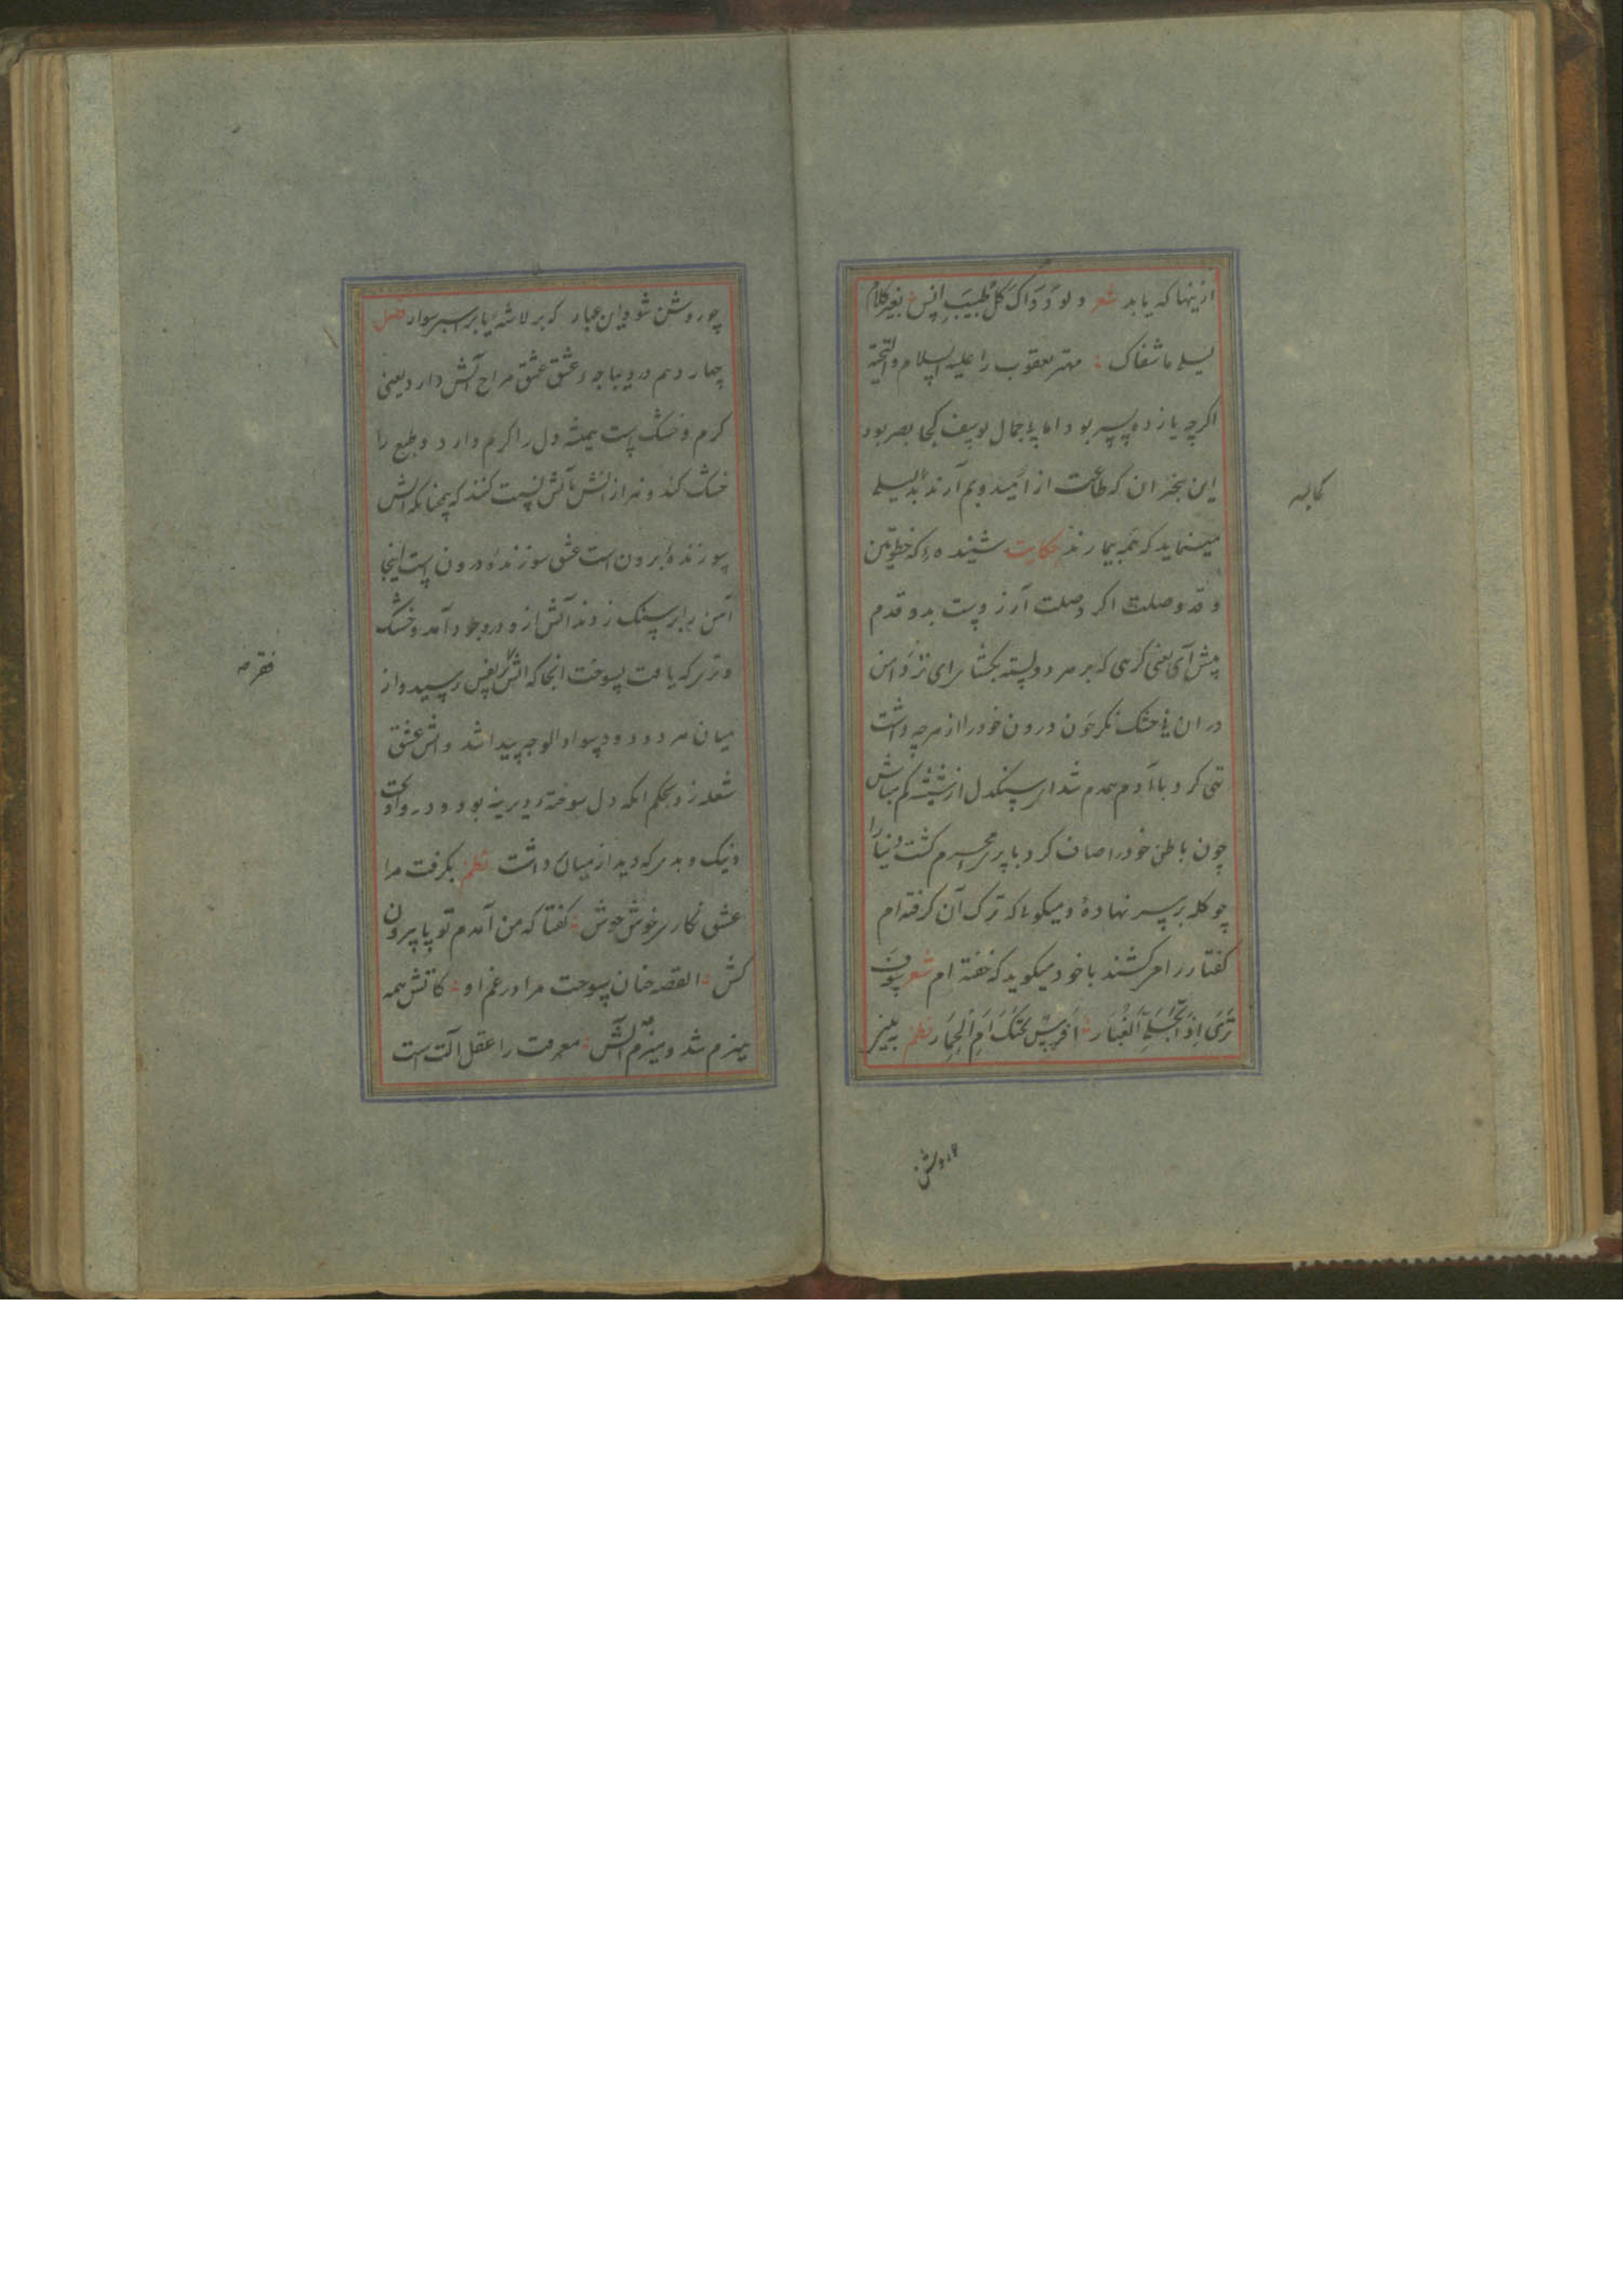 ازینها که یابد شعر ولو دَوَاک کُلّ طبیبِ انس بغیر کلام
لیلی ما شفاک مهتر یعقوب را علیه السلام والتحیة
اکرچه یازده پسر بود اما بی جمال یوسف کجا بصر بود
این بیخبران که طاعت از امید و بیم آرند
مینماید که همه بیمارند حکایت شنیده که خطوتین
و قد وصلت اکر وصلت آرزوست بدو قدم
پیش آی یعنی کرهی که بر هر دو بسته بکشا
در ان نی خشک نکر چون درون خود را از هرچه داشت
تهی کرد با آدم همدم شد ای سنکدل از شیشه کم مباش
چون باطن خود را صاف کرد با پری محرم کشت دنیا را
چو کله بر سر نهادهٔ و میکوئی که ترک آن کرفته ام
کفتار را مر کشند با خود میکوید که خفته ام شعر سوف
تَرَی اِذَا انجلی الغُبَار اَفَرَسٌ تحتک اَم الحِمَار نظم ببینی
چو روشن شود این غبار که بر لاشهٔ یا بر اسب سوار فصل
چهاردهم در دیباجهٔ عشق عشق مزاج آتش دارد یعنی
کرم و خشک است همیشه دل را کرم دارد و طبع را
خشک کند و نه از آتش بآتش نسبت کنند که همچنانکه آتش
سوزندهٔ برون است عشق سوزندهٔ درون است اینجا
آهن بر سنک زدند آتش ازو در وجود آمد و خشک
و تر هر که یافت بسوخت انجا که آتش بنفس رسید و از
میان هر دو دود سواد الوجه پیدا شد و آتش عشق
شعله زد بحکم انکه دل سوخته دیرینه بود و درو
و نیک و بد هر که دید از میان داشت نظم بکرفت مرا
عشق نکار سرخوش خوش کفتا که من آمدم تو پا بیرون
کش القصه چنان بسوخت مرا در غم او کاتش همه
هیزم شد و هیزم همه آتش معرفت را عقل آلت است
چو روشن